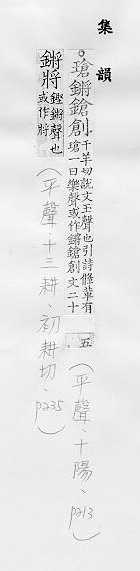 集韻
○瑲鏘鎗創千羊切說文玉聲也引詩鞗革有
瑲一曰樂聲或作鏘鎗創文二十
五（平聲、十陽、p213）
鏘將鏗鏘聲也
或作將
（平聲十三耕、初耕切、p235）